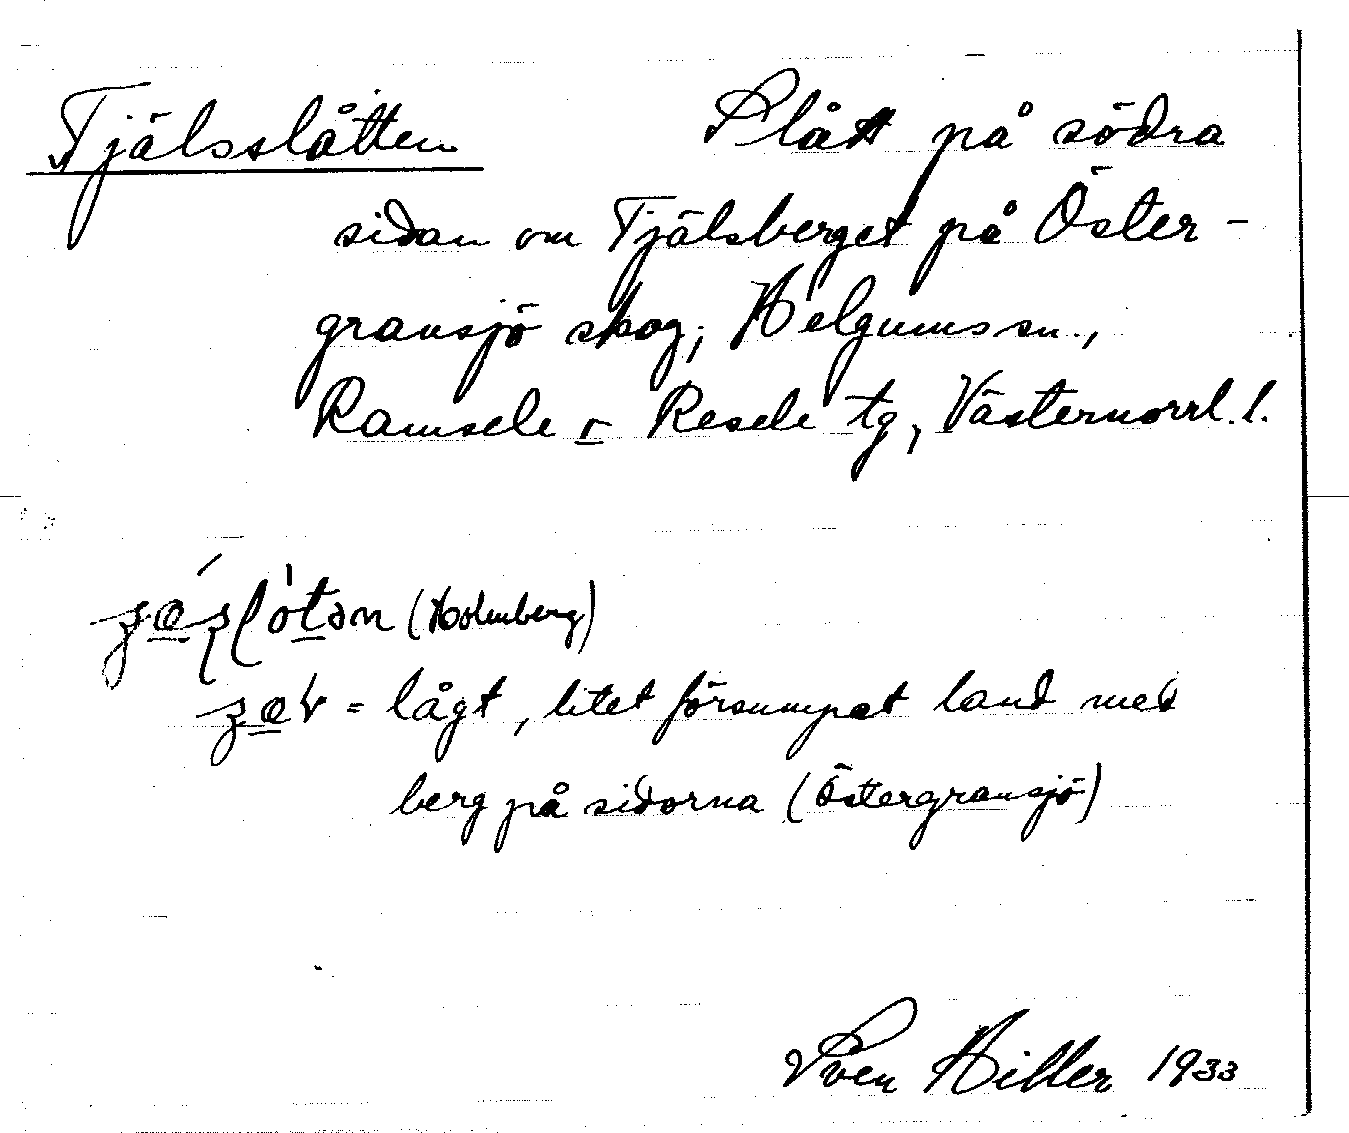 Tjälsslåtten Slått på södra
sidan om Tjälsberget på Öster-
gransjö skog, Helgums sn.,
Ramsele o Resele tg, Västernorrl. l.
(Holmberg)
= lågt, litet försumpat land med
berg på sidorna (Östergransjö)
Sven Hiller 1933